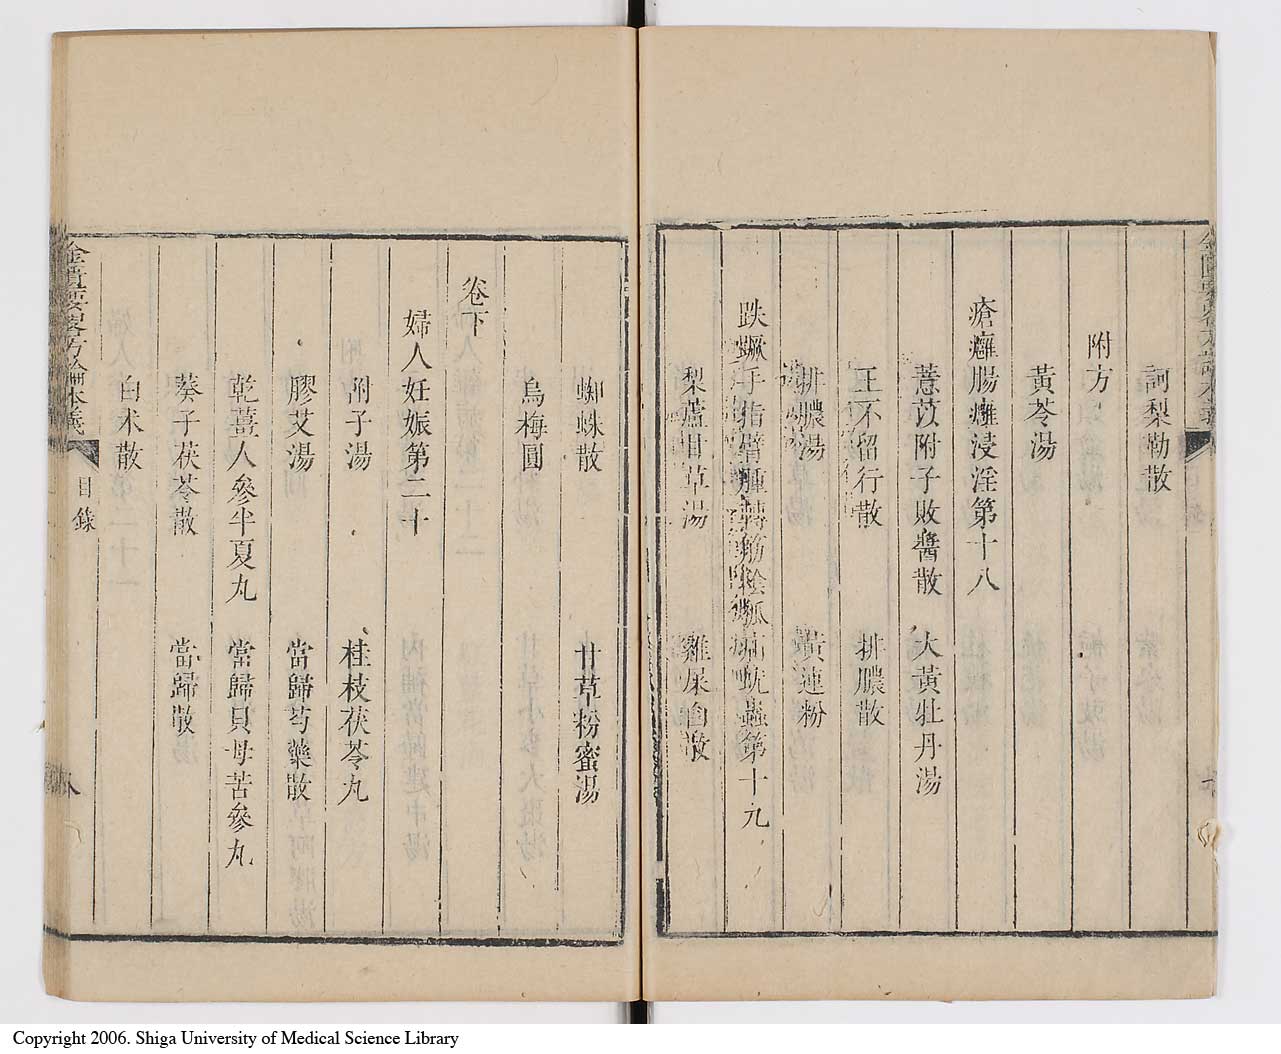 訶梨勒散
附方
黃芩湯
瘡癰腸癰浸淫第十八
薏苡附子敗醬散　大黃牡丹湯
王不留行散　排膿散
排膿湯　黃連粉
趺蹶手指臂腫轉筋陰狐疝蚘蟲第十九
梨蘆甘草湯　雞屎白散
蜘蛛散　甘草粉蜜湯
烏梅圓
卷下
婦人妊娠第二十
附子湯　桂枝茯苓丸
膠艾湯　當歸芍藥散
乾薑人參半夏丸　當歸貝母苦參丸
葵子茯苓散　當歸散
白朮散
金匱要畧方論本義　目錄　八
Copyright 2006. Shiga University of Medical Science Library